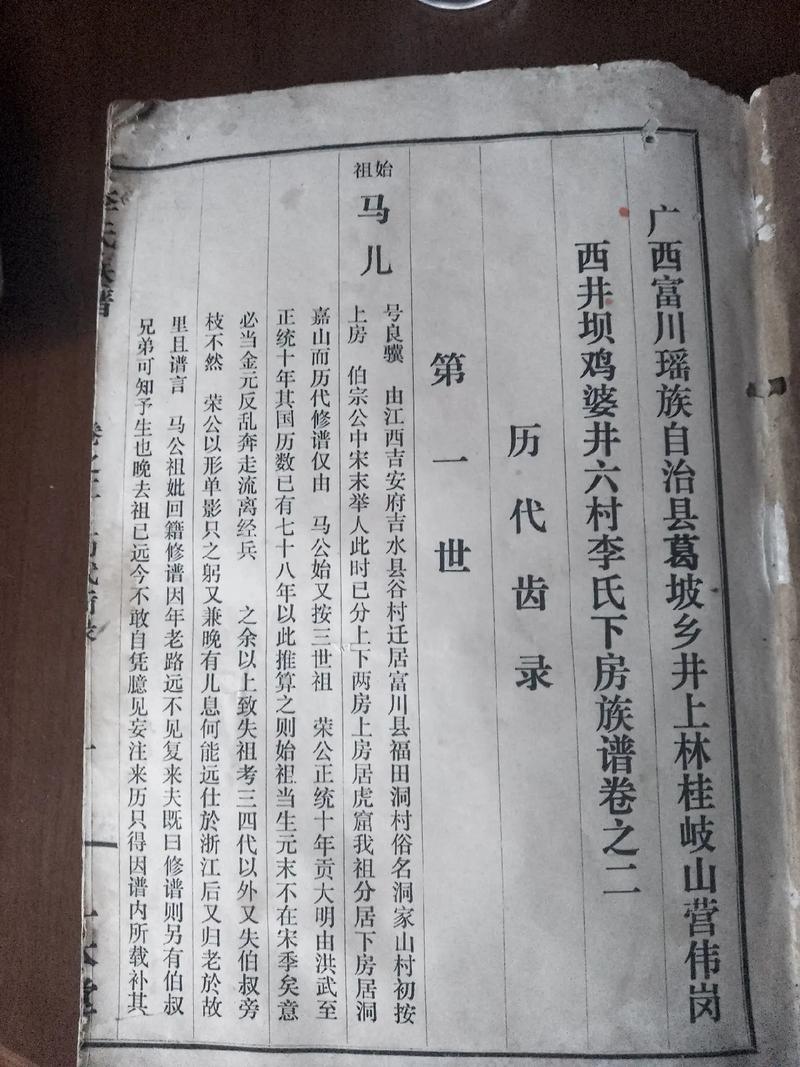 广西富川瑶族自治县葛坡乡井上林桂岐山营伟岗
西井坝鸡婆井六村李氏下房族谱卷之二
历代齿录
第一世
始祖
马儿
号良骥 由江西吉安府吉水县谷村迁居富川县福田洞村俗名洞家山村初按
上房 伯宗公中宋末举人此时已分上下两房上房居虎窟我祖分居下房居洞
嘉山而历代修谱仅由 马公始又按三世祖 荣公正统十年贡大明由洪武至
正统十年其国历数已有七十八年以此推算之则始祖当生元末不在宋季矣意
必当金元反乱奔走流离经兵 之余以上致失祖考三四代以外又失伯叔旁
枝不然 荣公以形单影只之躬又兼晚有儿息何能远仕於浙江后又归老於故
里且谱言 马公祖妣回籍修谱因年老路远不见复来夫既曰修谱则另有伯叔
兄弟可知予生也晚去祖已远今不敢自凭臆见妄注来历只得因谱内所载补其
李氏族谱